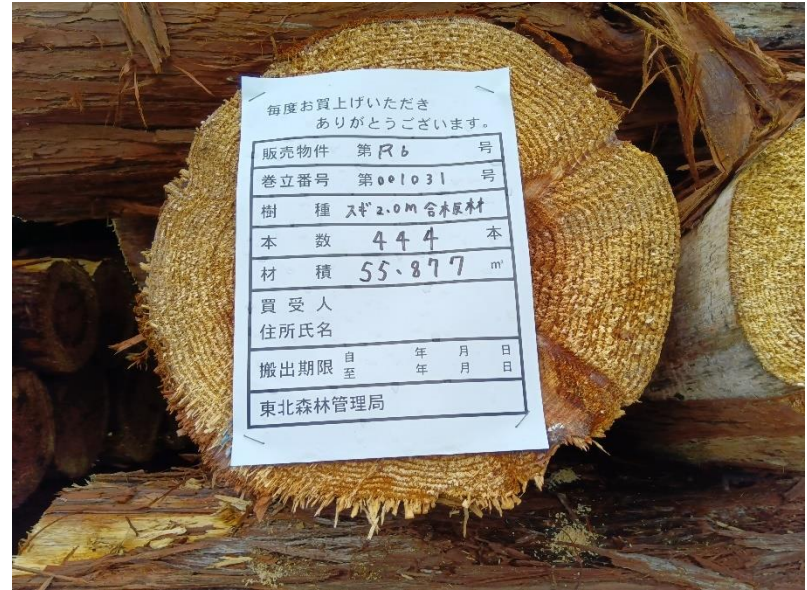 毎度お買上げいただき
ありがとうございます。
販売物件 第R6 号
巻立番号 第001031 号
樹種 スギ2.0m 合板原材
本数 444 本
材積 55.877 ㎥
買受人
住所氏名
搬出期限 自 年 月 日
至 年 月 日
東北森林管理局